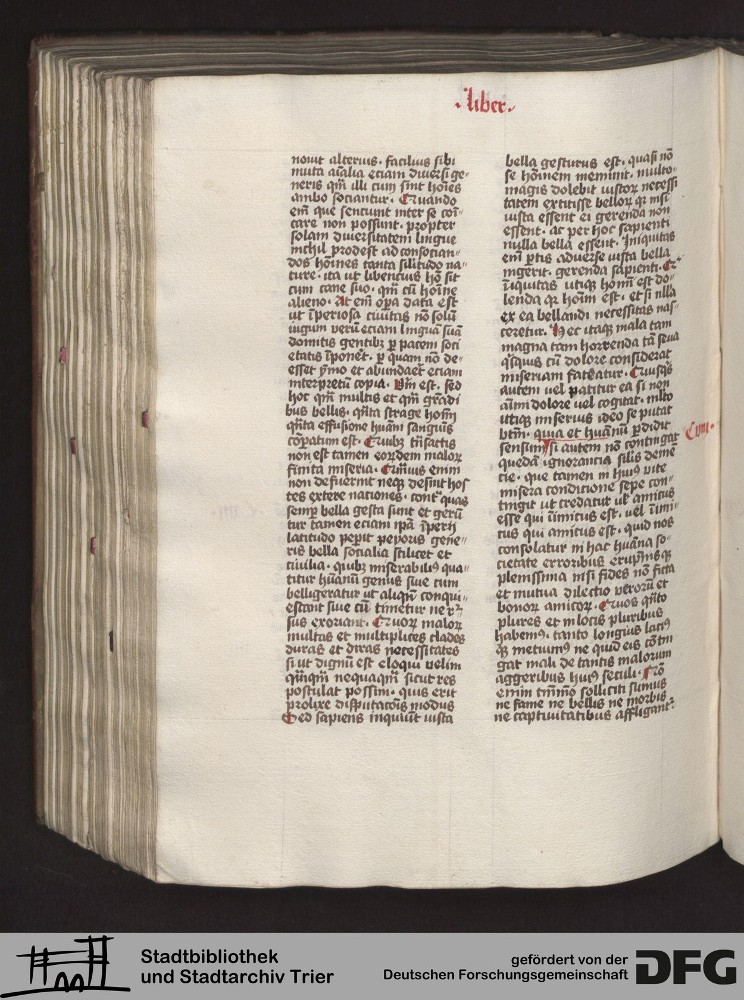 ·liber·
nouit alterius· facilius sibi
muta aīalia eciam diuersi ge-
neris qm̄ illi cum sint hoīes
ambo sociantur· Quando
em̄ que senciunt inter se cōi-
care non possunt· propter
solam diuersitatem lingue
nichil prodest ad consocian-
dos hoīnes tanta silitudo na-
ture· ita ut libencius hō sit
cum cane suo· qm̄ cū hoīne
alieno· At em̄ opa data est
ut īperiosa ciuitas nō solū
iugum verū eciam linguā suā
domitis gentibꝫ p pacem soci
etatis īponeret· p quam nō de-
esset ymo et abundaret eciam
interpretū copia· Vm̄ est· sed
hoc qm̄ multis et qm̄ grādi
bus bellis· qn̄ta strage hoīm̄
qn̄ta effusione huāni sanguis
cōpatum est· Quibꝫ tn̄sactis
non est tamen eorꝫdem malorꝫ
finita miseria· Qm̄uis enim
non defuerint neqꝫ desint hos
tes extere naciones· contͣ quas
semp bella gesta sunt et gerū
tur tamen eciam ipā īperij
latitudo pepit peyoris gene-
ris bella socialia scilicet et
ciuilia· quibꝫ miserabiliꝰ qua-
titur hūanū genus siue cum
belligeratur ut aliqn̄ conqui-
escant siue cū timetur ne rꝫ-
sus exoriant· Quorꝫ malorꝫ
multas et multiplices clades
duras et diras necessitates
si ut dignū est eloqui velim
qm̄qm̄ nequaqm̄ sicut res
postulat possim· quis erit
prolixe disputacōis modus
Sed sapiens inquiūt iusta
bella gesturus est· quasi nō
se hoīnem meminit· multo
magis dolebit iustorꝫ necessi
tatem extitisse bellorꝫ qꝛ nisi
iusta essent ei gerenda non
essent· ac per hoc sapienti
nulla bella essent· Iniquitas
em̄ ptis aduerse iusta bella
ingerit· gerenda sapienti· Q̄
īiquitas utiqꝫ homī est do-
lenda qꝛ hoīm est· et si nlla
ex ea bellandi necessitas nas-
ceretur· Hec itaqꝫ mala tam
magna tam horrenda tā seua
qͥsquis cū dolore considerat
miseriam fateatur· Quisqͥs
autem vel patitur ea si non
aīmi dolore vel cogitat· mlto
utiqꝫ miserius ideo se putat
btm̄· quia et huānū pdidit
sensum Si autem nō contingat
quedā ignorancia silis deme
cie· que tamen in huiꝰ vite
misera condicione sepe con-
tingit ut credatur ul̄ amicus
esse qui īimicus est· vel īimi-
cus qui amicus est· quid nos
consolatur in hac huāna so-
cietate erroribus erupnisqꝫ
plenissima nisi fides nō ficta
et mutua dilectio verorū et
bonorꝫ amicorꝫ· Quos qn̄to
plures et in locis pluribus
habemꝰ· tanto longius laciꝰ
qꝫ metuimꝰ ne quid eis cōtin
gat mali de tantis malorum
aggeribus huiꝰ seculi· Nō
enim tm̄mō solliciti sumus
ne fame ne bellis ne morbis
ne captiuitatibus affligantꝛ
Stadtbibliothek
und Stadtarchiv Trier
gefördert von der
Deutschen Forschungsgemeinschaft
DFG